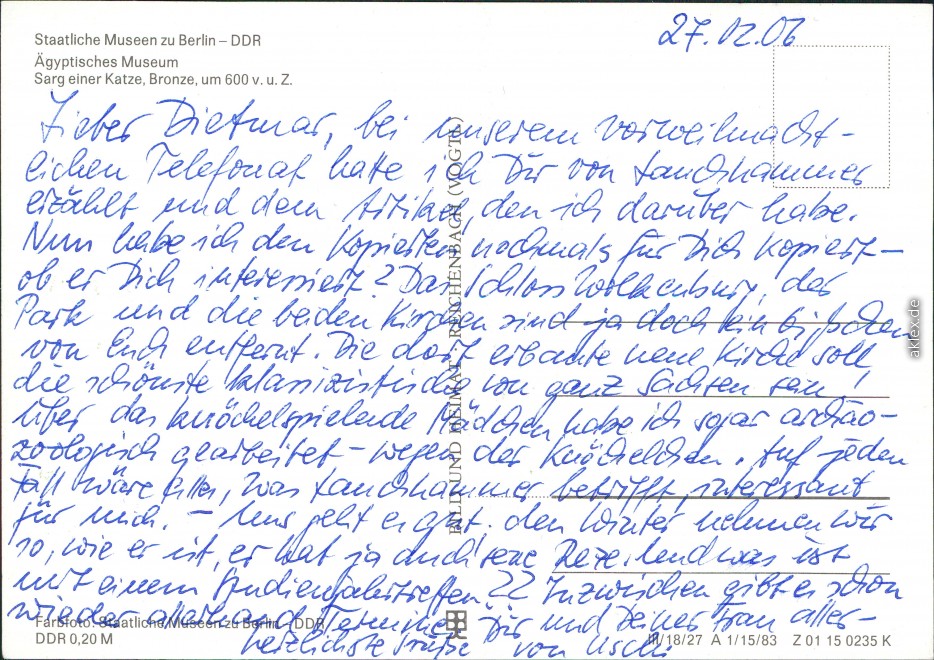 27.02.06
Staatliche Museen zu Berlin – DDR
Ägyptisches Museum
Sarg einer Katze, Bronze, um 600 v. u. Z.
Lieber Dietmar, bei unserem vorweihnacht-
lichen Telefonat hatte ich Dir von Landshammer
erzählt und dem Artikel, den ich darüber habe.
Nun habe ich den Kopierten nochmals für Dich kopiert –
ob er Dich interessiert? Das Schloss Wolkenburg, der
Park und die beiden Kirchen sind ja doch ein bißchen
von Euch entfernt. Die dort erbaute neue Kirche soll
die schönste klassizistische von ganz Sachsen sein!
Über das knöchelspielende Mädchen habe ich sogar archäo-
zoologisch gearbeitet – wegen der Knöchelchen. Auf jeden
Fall wäre alles, was Landshammer betrifft, interessant
für mich. – Uns geht es gut. Den Winter nehmen wir
so, wie er ist, er hat ja auch seine Reize. Und was ist
mit einem Studienjahrtreffen?? Inzwischen gibt es schon
wieder allerhand Termine. Dir und Deiner Frau aller-
herzlichste Grüße von Uschi
BILD UND HEIMAT REICHENBACH (VOGTL)
Farbfoto: Staatliche Museen zu Berlin – DDR
DDR 0,20 M
III/18/27 A 1/15/83 Z 01 15 0235 K
aklex.de